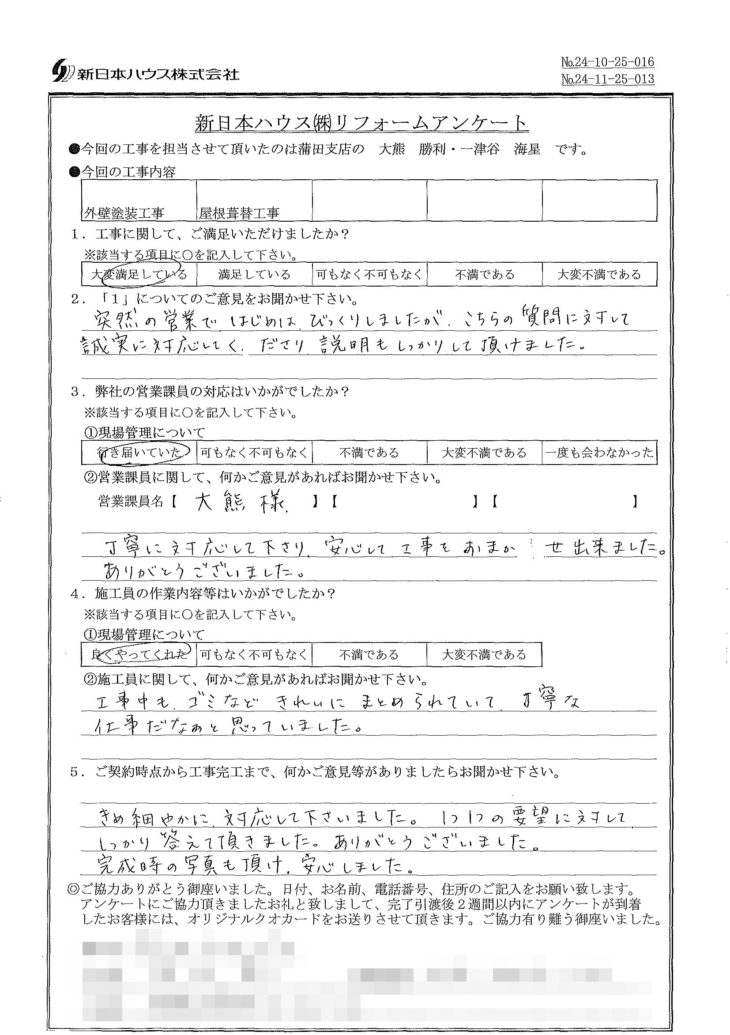 新日本ハウス株式会社
№24-10-25-016
№24-11-25-013
新日本ハウス㈱リフォームアンケート
●今回の工事を担当させて頂いたのは蒲田支店の 大熊 勝利・一津谷 海星 です。
●今回の工事内容
外壁塗装工事 屋根葺替工事
1．工事に関して、ご満足いただけましたか？
※該当する項目に○を記入して下さい。
大変満足している 満足している 可もなく不可もなく 不満である 大変不満である
2．「1」についてのご意見をお聞かせ下さい。
突然の営業で、はじめは、びっくりしましたが、こちらの質問に対して
誠実に対応してく、ださり、説明もしっかりして頂けました。
3．弊社の営業課員の対応はいかがでしたか？
※該当する項目に○を記入して下さい。
①現場管理について
行き届いていた 可もなく不可もなく 不満である 大変不満である 一度も会わなかった
②営業課員に関して、何かご意見があればお聞かせ下さい。
営業課員名【 大熊様 】【 】【 】
丁寧に対応して下さり、安心して工事をおまかせ出来ました。
ありがとうございました。
4．施工員の作業内容等はいかがでしたか？
※該当する項目に○を記入して下さい。
①現場管理について
良くやってくれた 可もなく不可もなく 不満である 大変不満である
②施工員に関して、何かご意見があればお聞かせ下さい。
工事中も、ゴミなど きれいに まとめられていて、丁寧な
仕事だなぁと思っていました。
5．ご契約時点から工事完工まで、何かご意見等がありましたらお聞かせ下さい。
きめ細やかに、対応して下さいました。1つ1つの要望に対して
しっかり答えて頂きました。ありがとうございました。
完成時の写真も頂け、安心しました。
◎ご協力ありがとう御座いました。日付、お名前、電話番号、住所のご記入をお願い致します。
アンケートにご協力頂きましたお礼と致しまして、完了引渡後２週間以内にアンケートが到着
したお客様には、オリジナルクオカードをお送りさせて頂きます。ご協力有り難う御座いました。